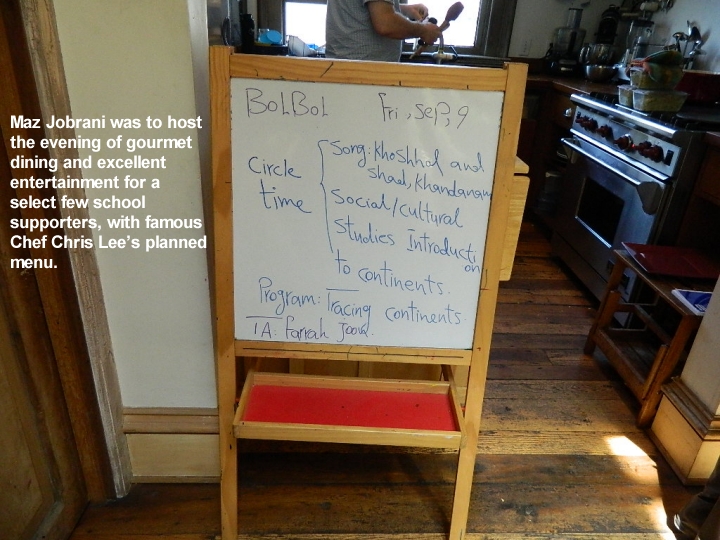 Maz Jobrani was to host
the evening of gourmet
dining and excellent
entertainment for a
select few school
supporters, with famous
Chef Chris Lee's planned
menu.
BOLBOL Fri, Sep, 9
Circle
time
Song: Khoshhal and
shad, Khandanam
Social/cultural
Studies Introducti
on
to continents.
Program: Tracing continents.
TA: Farrah